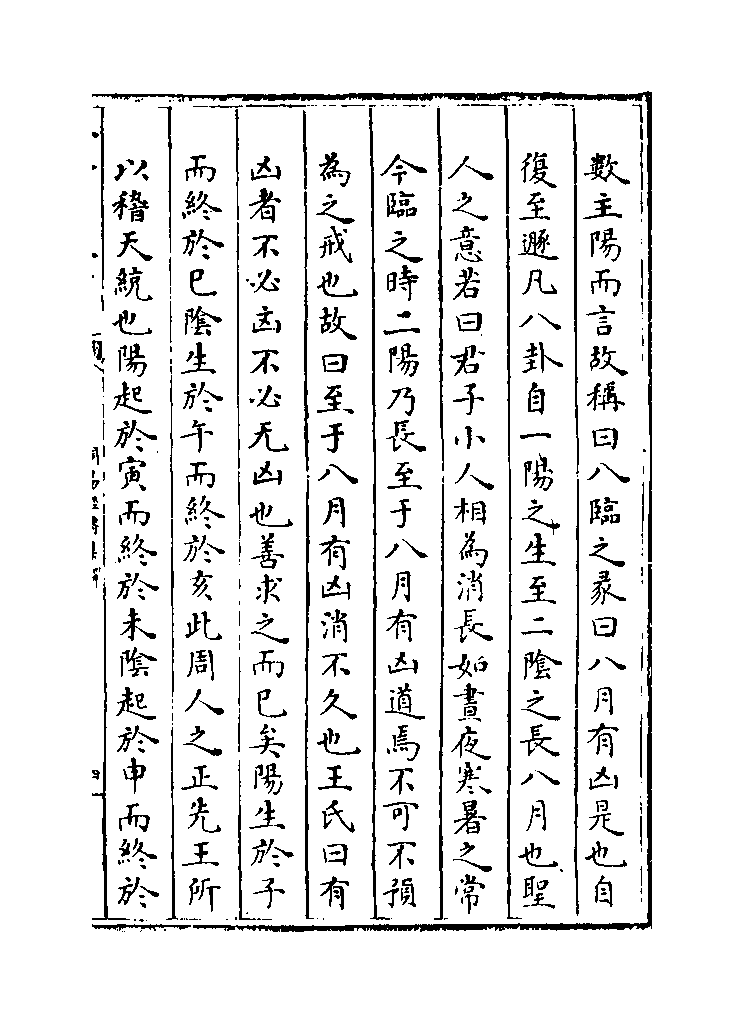 數主陽而言故稱曰八臨之彖曰八月有凶是也自
復至遯凡八卦自一陽之生至二陰之長八月也聖
人之意若曰君子小人相為消長如晝夜寒暑之常
今臨之時二陽乃長至于八月有凶道焉不可不預
為之戒也故曰至于八月有凶消不久也王氏曰有
凶者不必凶不必无凶也善求之而已矣陽生於子
而終於巳陰生於午而終於亥此周人之正先王所
以稽天統也陽起於寅而終於未陰起於申而終於